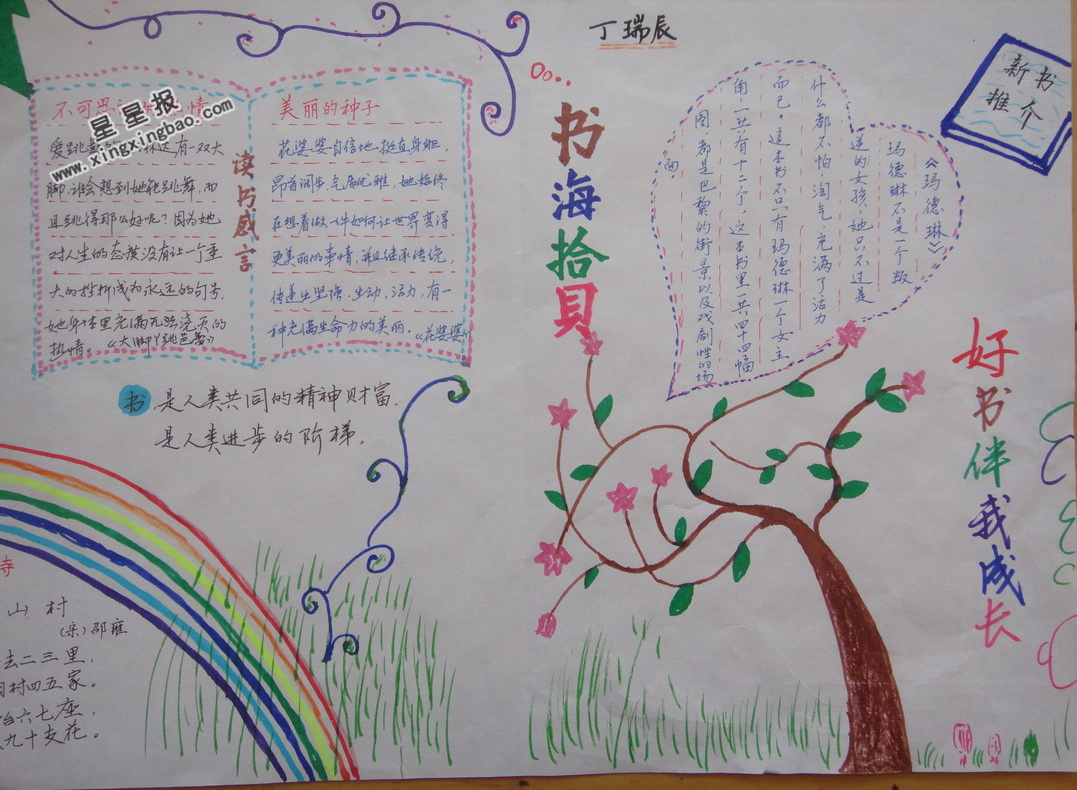 丁瑞辰
星星报
www.xingxingbao.com
不可思
情
爱跳
有一双大
脚,谁会想到她能跳舞,而
且跳得那么好呢?因为她
对人生的态度没有让一个重
大的挫折成为永远的句号,
她身体里充满无法浇灭的
热情。《大脚丫跳芭蕾》
读书感言
美丽的种子
花婆婆自信地挺直身躯,
昂首阔步气质优雅,她始终
在想着做一件如何让世界变得
更美丽的事情,并且继承传统,
传递出坚强、生动、活力,有一
种充满生命力的美丽。《花婆婆》
书是人类共同的精神财富,
是人类进步的阶梯。
寺
山村
(宋)邵雍
去二三里,
村四五家。
六七座,
九十支花。
书海拾贝
新书
推介
《玛德琳》
玛德琳不是一个叛
逆的女孩,她只不过是
什么都不怕淘气充满了活力
而已。这本书不只有玛德琳一个女主
角,一共有十二个,这本书里一共四十四幅
图都是巴黎的街景以及戏剧性的场
面
好书伴我成长